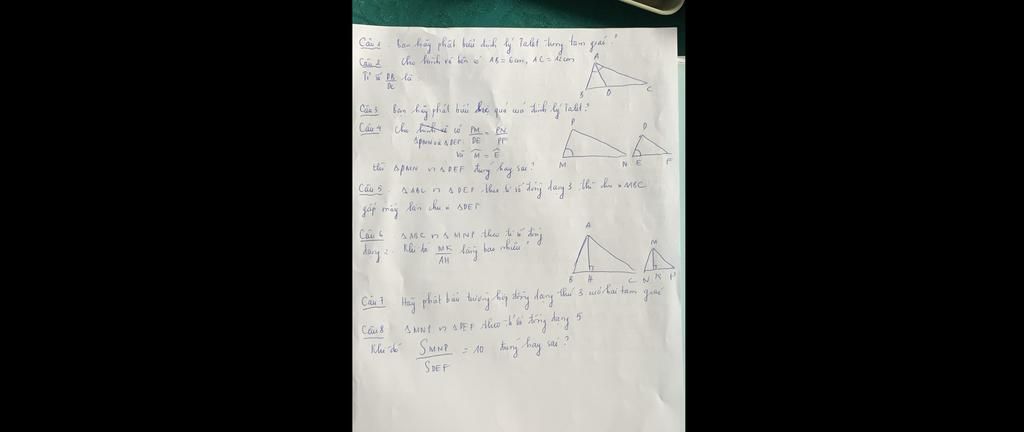 Câu 1. Bạn hãy phát biểu định lý Talet trong tam giác?
Câu 2 Cho hình vẽ bên có AB = 6cm, AC = 12cm
Tỉ số DB/DC là
A
B D C
Câu 3 Bạn hãy phát biểu hệ quả của định lý Talet?
Câu 4 Cho hình vẽ có PM/DE = PN/DF
ΔPMN và ΔDEF.
Và M̂ = Ê
thì ΔPMN ∽ ΔDEF đúng hay sai?
P
M N
D
E F
Câu 5. ΔABC ∽ ΔDEF theo tỉ số đồng dạng 3 thì chu vi ABC
gấp mấy lần chu vi ΔDEF
Câu 6 ΔABC ∽ ΔMNP theo tỉ số đồng
dạng 2. Khi đó MK/AH bằng bao nhiêu?
A
B H C
M
N K P
Câu 7 Hãy phát biểu trường hợp đồng dạng thứ 3 của hai tam giác
Câu 8 ΔMNP ∽ ΔDEF theo tỉ số đồng dạng 5
Khi đó S MNP / S DEF = 10 đúng hay sai?